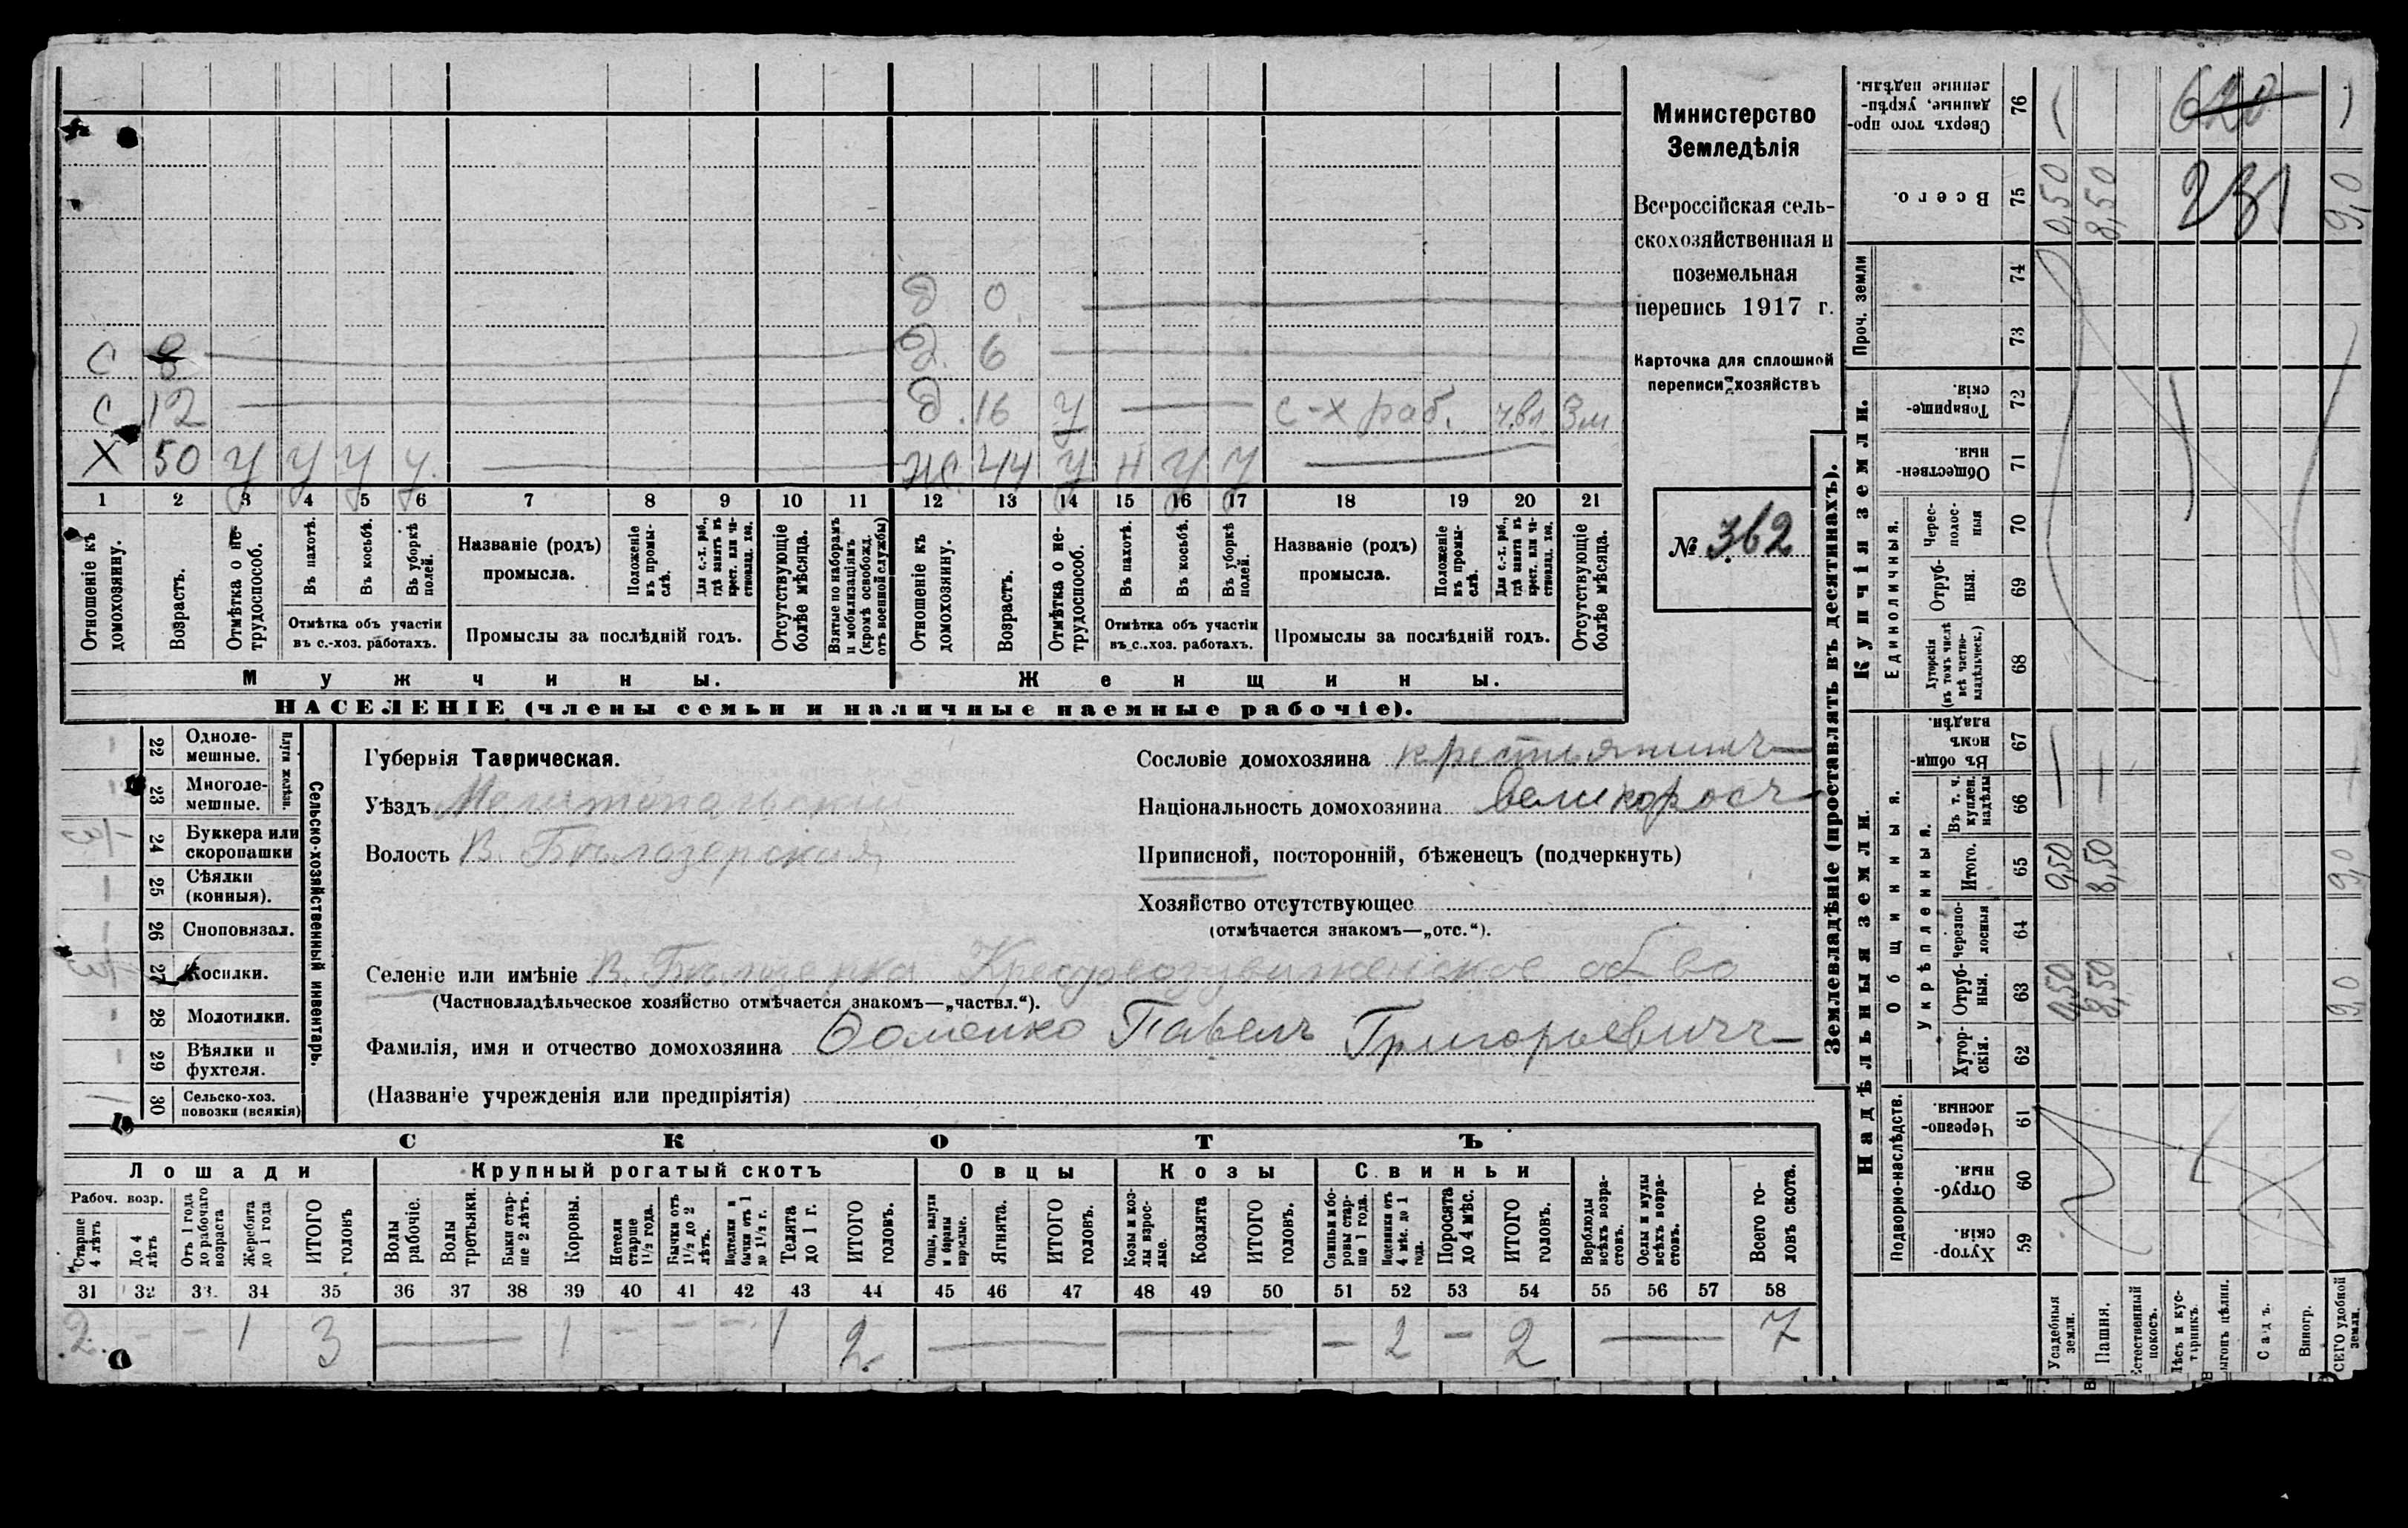 Министерство
Земледѣлія
Всероссійская сель-
скохозяйственная и
поземельная
перепись 1917 г.
Карточка для сплошной
переписи хозяйствъ
№ 362
Д 0
С 8 Д. 6
С 12 Д. 16 У с-х раб. ч.вл. 3м
Х 50 У У У У. Ж. 44 У Н У У
1 2 3 4 5 6 7 8 9 10 11 12 13 14 15 16 17 18 19 20 21
Отношеніе къ домохозяину.
Возрастъ.
Отмѣтка о не-трудоспособ.
Въ пахотѣ.
Въ косьбѣ.
Въ уборкѣ полей.
Отмѣтка объ участіи
въ с.-хоз. работахъ.
Названіе (родъ)
промысла.
Положеніе въ промы-слѣ.
Для с.-х. раб., гдѣ занятъ въ крест. или ча-стновлад. хоз.
Промыслы за послѣдній годъ.
Отсутствующіе болѣе мѣсяца.
Взятые по наборамъ и мобилизаціямъ (кромѣ освобожд. отъ военной службы)
Отношеніе къ домохозяину.
Возрастъ.
Отмѣтка о не-трудоспособ.
Въ пахотѣ.
Въ косьбѣ.
Въ уборкѣ полей.
Отмѣтка объ участіи
въ с.-хоз. работахъ.
Названіе (родъ)
промысла.
Положеніе въ промы-слѣ.
Для с.-х. раб., гдѣ занята въ крест. или ча-стновлад. хоз.
Промыслы за послѣдній годъ.
Отсутствующіе болѣе мѣсяца.
Мужчины. Женщины.
НАСЕЛЕНІЕ (члены семьи и наличные наемные рабочіе).
Сельско-хозяйственный инвентарь.
Плуги желѣзн.
22 Одноле-мешные.
23 Многоле-мешные.
24 Буккера или скоропашки
25 Сѣялки (конныя).
26 Сноповязал.
27 Косилки.
28 Молотилки.
29 Вѣялки и фухтеля.
1 30 Сельско-хоз. повозки (всякія)
Губернія Таврическая.
Уѣздъ Мелитопольскій
Волость В. Бѣлозерская
Сословіе домохозяина крестьянинъ
Національность домохозяина великороссъ
Приписной, посторонній, бѣженецъ (подчеркнуть)
Хозяйство отсутствующее
(отмѣчается знакомъ—„отс.“).
Селеніе или имѣніе В. Бѣлозерка Крестовоздвиженское об-во
(Частновладѣльческое хозяйство отмѣчается знакомъ—„частвл.“).
Фамилія, имя и отчество домохозяина Павелъ Григорьевичъ
(Названіе учрежденія или предпріятія)
СКОТЪ
Лошади Крупный рогатый скотъ Овцы Козы Свиньи
Рабоч. возр.
Старше 4 лѣтъ
До 4 лѣтъ
Отъ 1 года до рабочаго возраста
Жеребята до 1 года
ИТОГО головъ
Волы рабочіе.
Волы третьяки.
Быки стар-ше 2 лѣтъ.
Коровы.
Нетели старше 1½ года.
Бычки отъ 1½ до 2 лѣтъ.
Нетелки и бычки отъ 1 до 1½ г.
Телята до 1 г.
ИТОГО головъ.
Овцы, валухи и бараны взрослые.
Ягнята.
ИТОГО головъ.
Козы и коз-лы взрос-лые.
Козлята
ИТОГО головъ.
Свиньи и бо-ровы стар-ше 1 года.
Подсвинки отъ 4 мѣс. до 1 года.
Поросята до 4 мѣс.
ИТОГО головъ.
Верблюды всѣхъ возра-стовъ.
Ослы и мулы всѣхъ возра-стовъ.
Всего го-ловъ скота.
31 32 33 34 35 36 37 38 39 40 41 42 43 44 45 46 47 48 49 50 51 52 53 54 55 56 57 58
2. - - 1 3 — 1 - - - 1 2. — — - 2 - 2 — 7
Землевладѣніе (проставлять въ десятинахъ).
Купчія земли.
Надѣльныя земли.
Сверхъ того про-данные, укрѣп-ленные надѣлы. 76
620
Всего. 75 0,50 8,50 231 9,0
Проч. земли 74 73
Товарище-скія. 72
Обществен-ныя. 71
Единоличныя.
Черес-полос-ныя 70
Отруб-ныя. 69
Хуторскія (въ томъ числѣ всѣ частно-владѣльческ.) 68
Общинныя.
Въ общи-номъ владѣн. 67
Укрѣпленныя.
Въ т. ч. куплен. надѣлы 66
Итого. 65 0,50 8,50 9,0
Черезпо-лосныя 64
Отруб-ныя. 63 0,50 8,50 9,0
Хутор-скія. 62
Подворно-наслѣдств.
Черезпо-лосныя 61
Отруб-ныя. 60
Хутор-скія. 59
Усадебныя земли.
Пашня.
Естественный покосъ.
Лѣсъ и кус-тарникъ.
Выгонъ цѣлин.
Садъ.
Виногр.
ВСЕГО удобной земли.